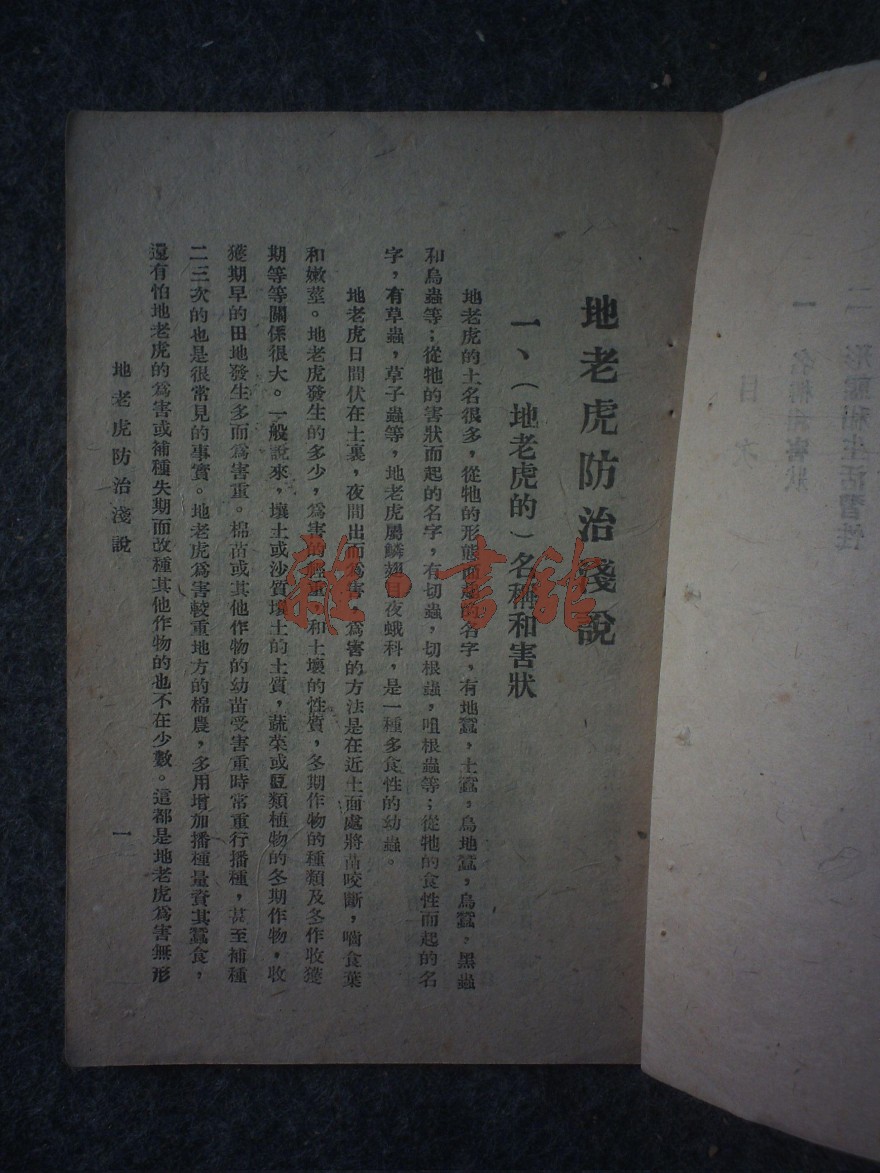 地老虎防治淺說
一、（地老虎的）名稱和害狀
地老虎的土名很多，從牠的形態而起的名字，有地蠶，土蠶，烏地蠶，烏蠶，黑蟲
和烏蟲等；從牠的害狀而起的名字，有切蟲，切根蟲，咀根蟲等；從牠的食性而起的名
字，有草蟲，草子蟲等，地老虎屬鱗翅目夜蛾科，是一種多食性的幼蟲。
地老虎日間伏在土裏，夜間出而爲害，爲害的方法是在近土面處將苗咬斷，嚙食葉
和嫩莖。地老虎發生的多少，爲害的輕重，和土壤的性質，冬期作物的種類及冬作收獲
期等等關係很大。一般說來，壤土或沙質壤土的土質，蔬菜或豆類植物的冬期作物，收
獲期早的田地發生多而爲害重。棉苗或其他作物的幼苗受害重時常重行播種，甚至補種
二三次的也是很常見的事實。地老虎爲害較重地方的棉農，多用增加播種量資其蠶食，
還有怕地老虎的爲害或補種失期而改種其他作物的也不在少數。這都是地老虎爲害無形
地老虎防治淺說
一
雜·書館
目次
一 名稱和害狀
二 形態和生活習性